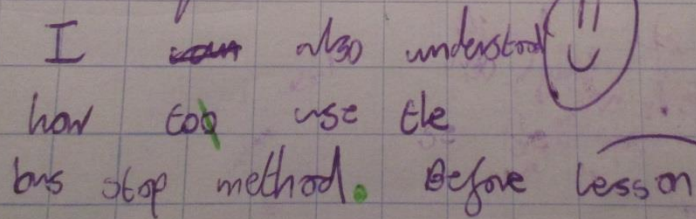 I also understood
how too use the
bus stop method. Before lesson